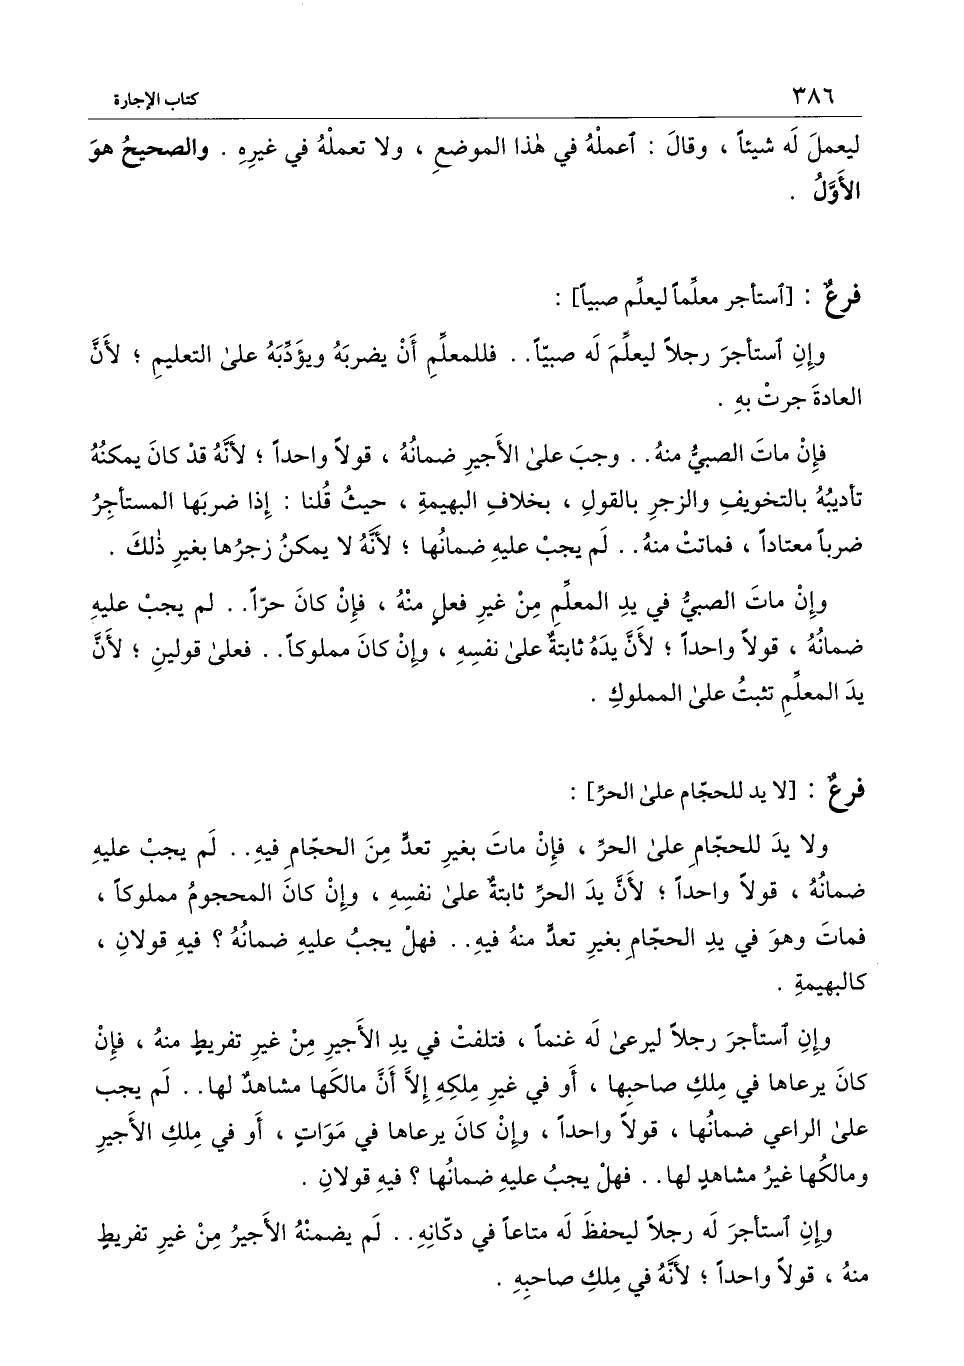 ٣٨٦
كتاب الإجارة
ليعملَ لَه شيئاً ، وقالَ : ٱعملْهُ في هٰذا الموضعِ ، ولا تعملْهُ في غيرِهِ . والصحيحُ هوَ
الأَوَّلُ .
فرعٌ : [ٱستأجر معلِّماً ليعلِّم صبياً] :
وإِنِ ٱستأجرَ رجلاً ليعلِّمَ لَه صبيّاً . . فللمعلِّمِ أَنْ يضربَهُ ويؤَدِّبَهُ علىٰ التعليمِ ؛ لأَنَّ
العادةَ جرتْ بهِ .
فإِنْ ماتَ الصبيُّ منهُ . . وجبَ علىٰ الأَجيرِ ضمانُهُ ، قولاً واحداً ؛ لأَنَّهُ قدْ كانَ يمكنُهُ
تأديبُهُ بالتخويفِ والزجرِ بالقولِ ، بخلافِ البهيمةِ ، حيثُ قُلنا : إِذا ضربَها المستأجِرُ
ضرباً معتاداً ، فماتتْ منهُ . . لَم يجبْ عليهِ ضمانُها ؛ لأَنَّهُ لا يمكنُ زجرُها بغيرِ ذٰلكَ .
وإِنْ ماتَ الصبيُّ في يدِ المعلِّمِ مِنْ غيرِ فعلٍ منْهُ ، فإِنْ كانَ حرّاً . . لم يجبْ عليهِ
ضمانُهُ ، قولاً واحداً ؛ لأَنَّ يدَهُ ثابتةٌ علىٰ نفسِهِ ، وإِنْ كانَ مملوكاً . . فعلىٰ قولينِ ؛ لأَنَّ
يدَ المعلِّمِ تثبتُ علىٰ المملوكِ .
فرعٌ : [لا يد للحجّام علىٰ الحرِّ] :
ولا يدَ للحجّامِ علىٰ الحرِّ ، فإِنْ ماتَ بغيرِ تعدٍّ مِنَ الحجّامِ فيهِ . . لَم يجبْ عليهِ
ضمانُهُ ، قولاً واحداً ؛ لأَنَّ يدَ الحرِّ ثابتةٌ علىٰ نفسِهِ ، وإِنْ كانَ المحجومُ مملوكاً ،
فماتَ وهوَ في يدِ الحجّامِ بغيرِ تعدٍّ منهُ فيهِ . . فهلْ يجبُ عليهِ ضمانُهُ ؟ فيهِ قولانِ ،
كالبهيمةِ .
وإِنِ ٱستأجرَ رجلاً ليرعىٰ لَه غنماً ، فتلفتْ في يدِ الأَجيرِ مِنْ غيرِ تفريطٍ منهُ ، فإِنْ
كانَ يرعاها في مِلكِ صاحبِها ، أَو في غيرِ مِلكِهِ إِلاَّ أَنَّ مالكَها مشاهدٌ لها . . لَم يجب
علىٰ الراعي ضمانُها ، قولاً واحداً ، وإِنْ كانَ يرعاها في مَوَاتٍ ، أَو في مِلكِ الأَجيرِ
ومالكُها غيرُ مشاهدٍ لها . . فهلْ يجبُ عليهِ ضمانُها ؟ فيهِ قولانِ .
وإِنِ ٱستأجرَ لَه رجلاً ليحفظَ لَه متاعاً في دكّانِهِ . . لَم يضمنْهُ الأَجيرُ مِنْ غيرِ تفريطٍ
منهُ ، قولاً واحداً ؛ لأَنَّهُ في مِلكِ صاحبِهِ .